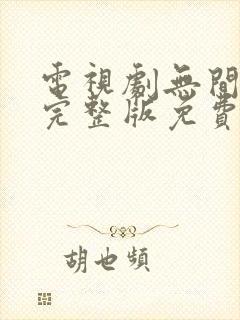 電視劇無間
完整版免費
胡也頻